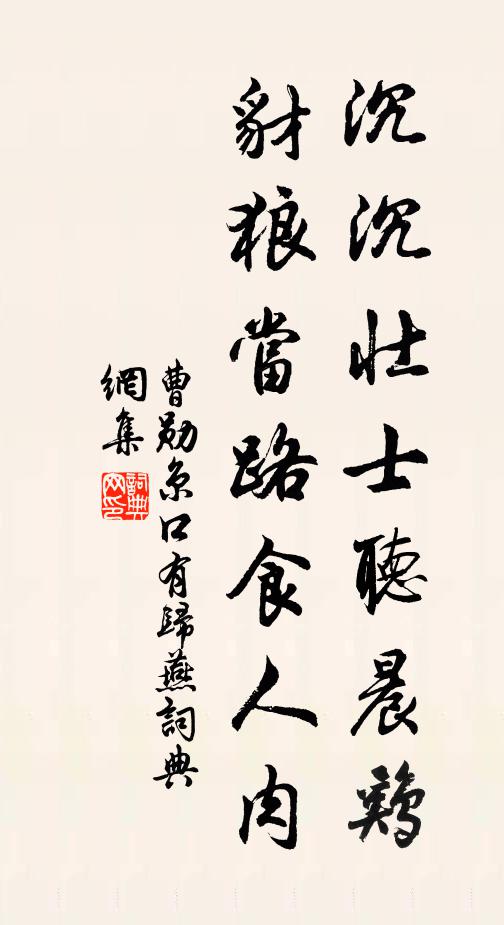 沉沉壯士聽晨鷄
豺狼當路食人肉
曹勛京口有歸燕詞典
網集
詞典網印